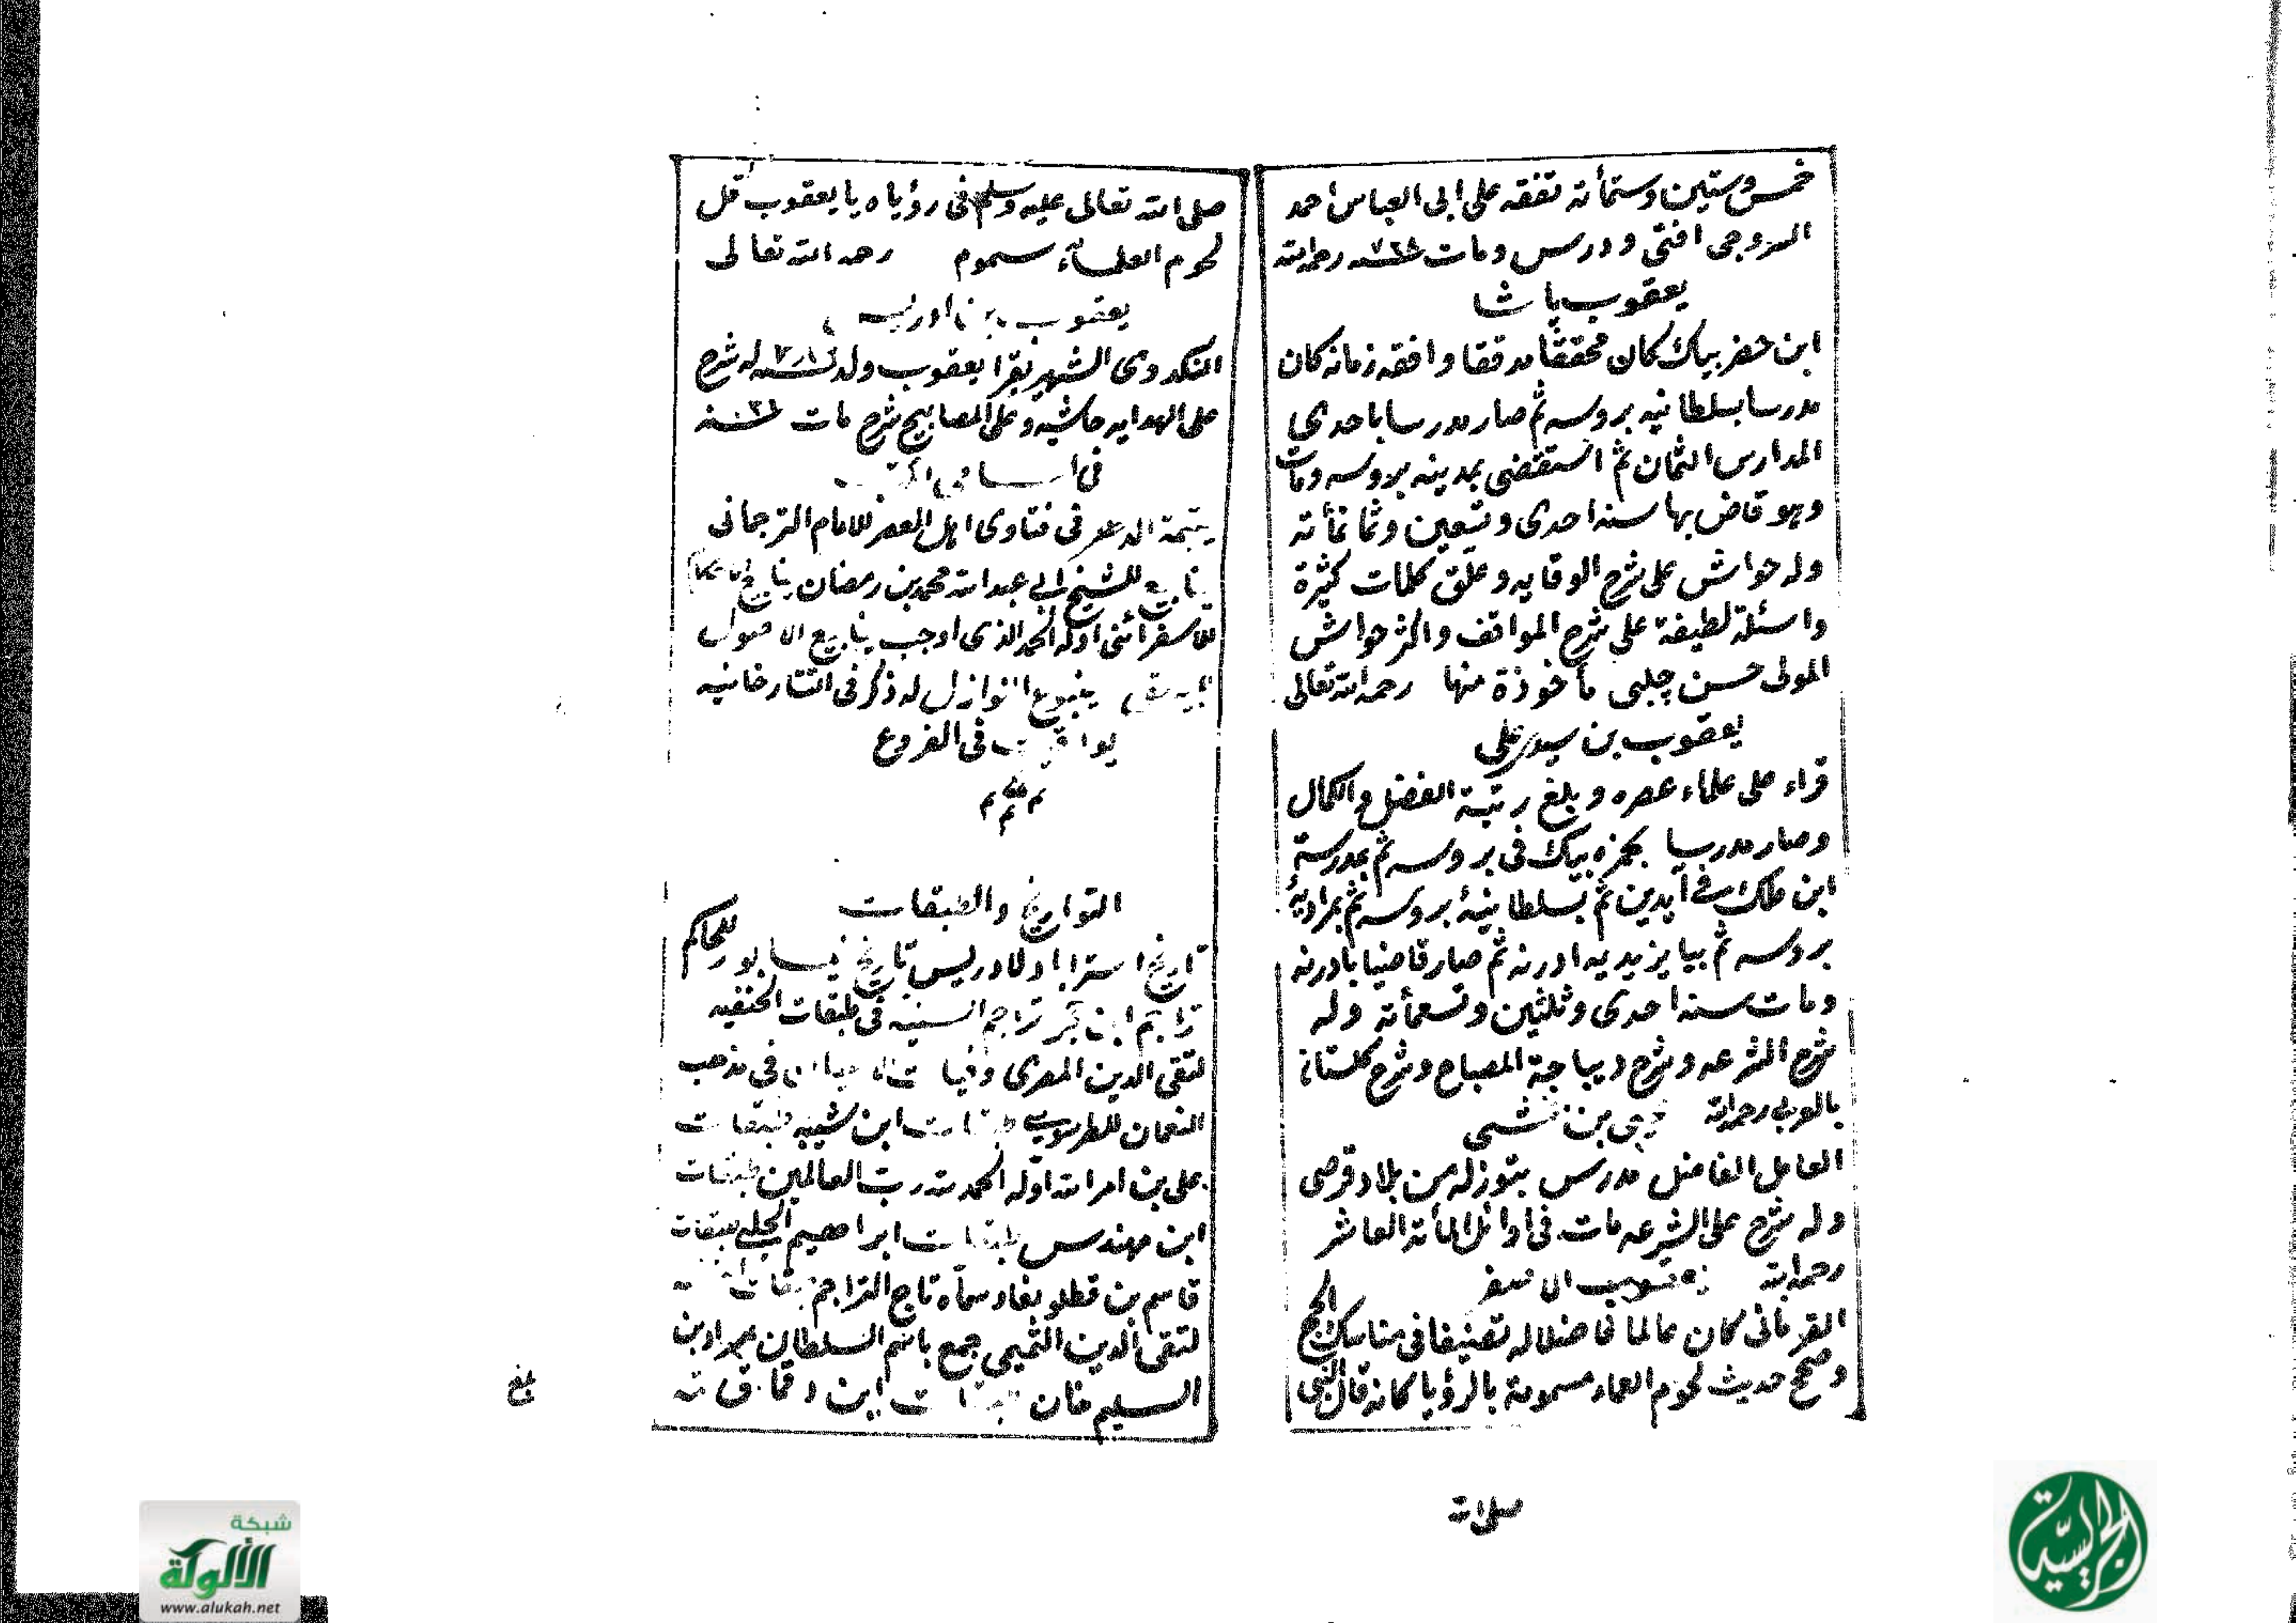 خمس وستين وستمأنة تفقه على ابى العباس احمد
السروجى افتى ودرس ومات سنة رحمه الله
يعقوب پاشا
ابن خضر بيك كان محققا مدققا وافقه زمانه كان
مدرسا بسلطانيه بروسه ثم صار مدرسا باحدى
المدارس الثمان ثم استقضى بمدينه بروسه ومات
وهو قاض بها سنه احدى وتسعين وثمانمأته
وله حواش على شرح الوقايه وعلق كلمات كثيرة
واسئلة لطيفة على شرح المواقف واكثر حواش
المولى حسن چلبى مأخوذة منها رحمه الله تعالى
يعقوب بن سيد على
قراء على علماء عصره وبلغ رتبة الفضل والكمال
وصار مدرسا بحمزه بيك فى بروسه ثم بمدرسة
ابن ملك فى آيدين ثم بسلطانية بروسه ثم بمراديه
بروسه ثم ببايزيديه ادرنه ثم صار قاضيا بادرنه
ومات سنه احدى وثلثين وتسعمأته وله
شرح الشرعه وشرح ديباجة المصباح وشرح كلستان
بالعربى رحمه الله بن نخشى
العامل الفاضل مدرس بتوزله من بلاد قرصى
وله شرح على الشرعه مات فى اوائل المأته العاشر
رحمه الله يعقوب الاصفر
القرمانى كان عالما فاضلا له تصنيفا فى مناسك الحج
وصحح حديث لحوم العلماء مسمومة بالرؤيا كانه قال النبى
صلى الله
صلى الله تعالى عليه وسلم فى رؤياه يا يعقوب قل
لحوم العلماء سموم رحمه الله تعالى
يعقوب بن ادريس
النكدوى الشهير بقرا يعقوب ولد سنه له شرح
على الهدايه حاشيه وعلى المصابيح شرح مات سنه
فى اسامى
يتيمة الدهر فى فتاوى اهل العصر للامام الترجمانى
ينابيع للشيخ ابى عبد الله محمد بن رمضان ينابيع
للاسفرائنى اوله الحمد الذى اوجب ينابيع الاصول
ينبوع النوازل له ذكر فى التتارخانيه
يواقيت فى الفروع
التواريخ والطبقات
تاريخ استراباد لادريس تاريخ نيسابور للحاكم
تراجم ابن حجر تراجم السنيه فى طبقات الحنفيه
لتقى الدين المصرى وفيات الاعيان فى مذهب
النعمان للطرسوسى طبقات ابن شيبه طبقات
على بن امر الله اوله الحمد لله رب العالمين طبقات
ابن مهندس طبقات ابراهيم الحلبى طبقات
قاسم بن قطلوبغا وسماه تاج التراجم طبقات
لتقى الدين التميمى جمع باسم السلطان مراد بن
السليم خان طبقات ابن دقماق
بلغ
شبكة
الألوكة
www.alukah.net